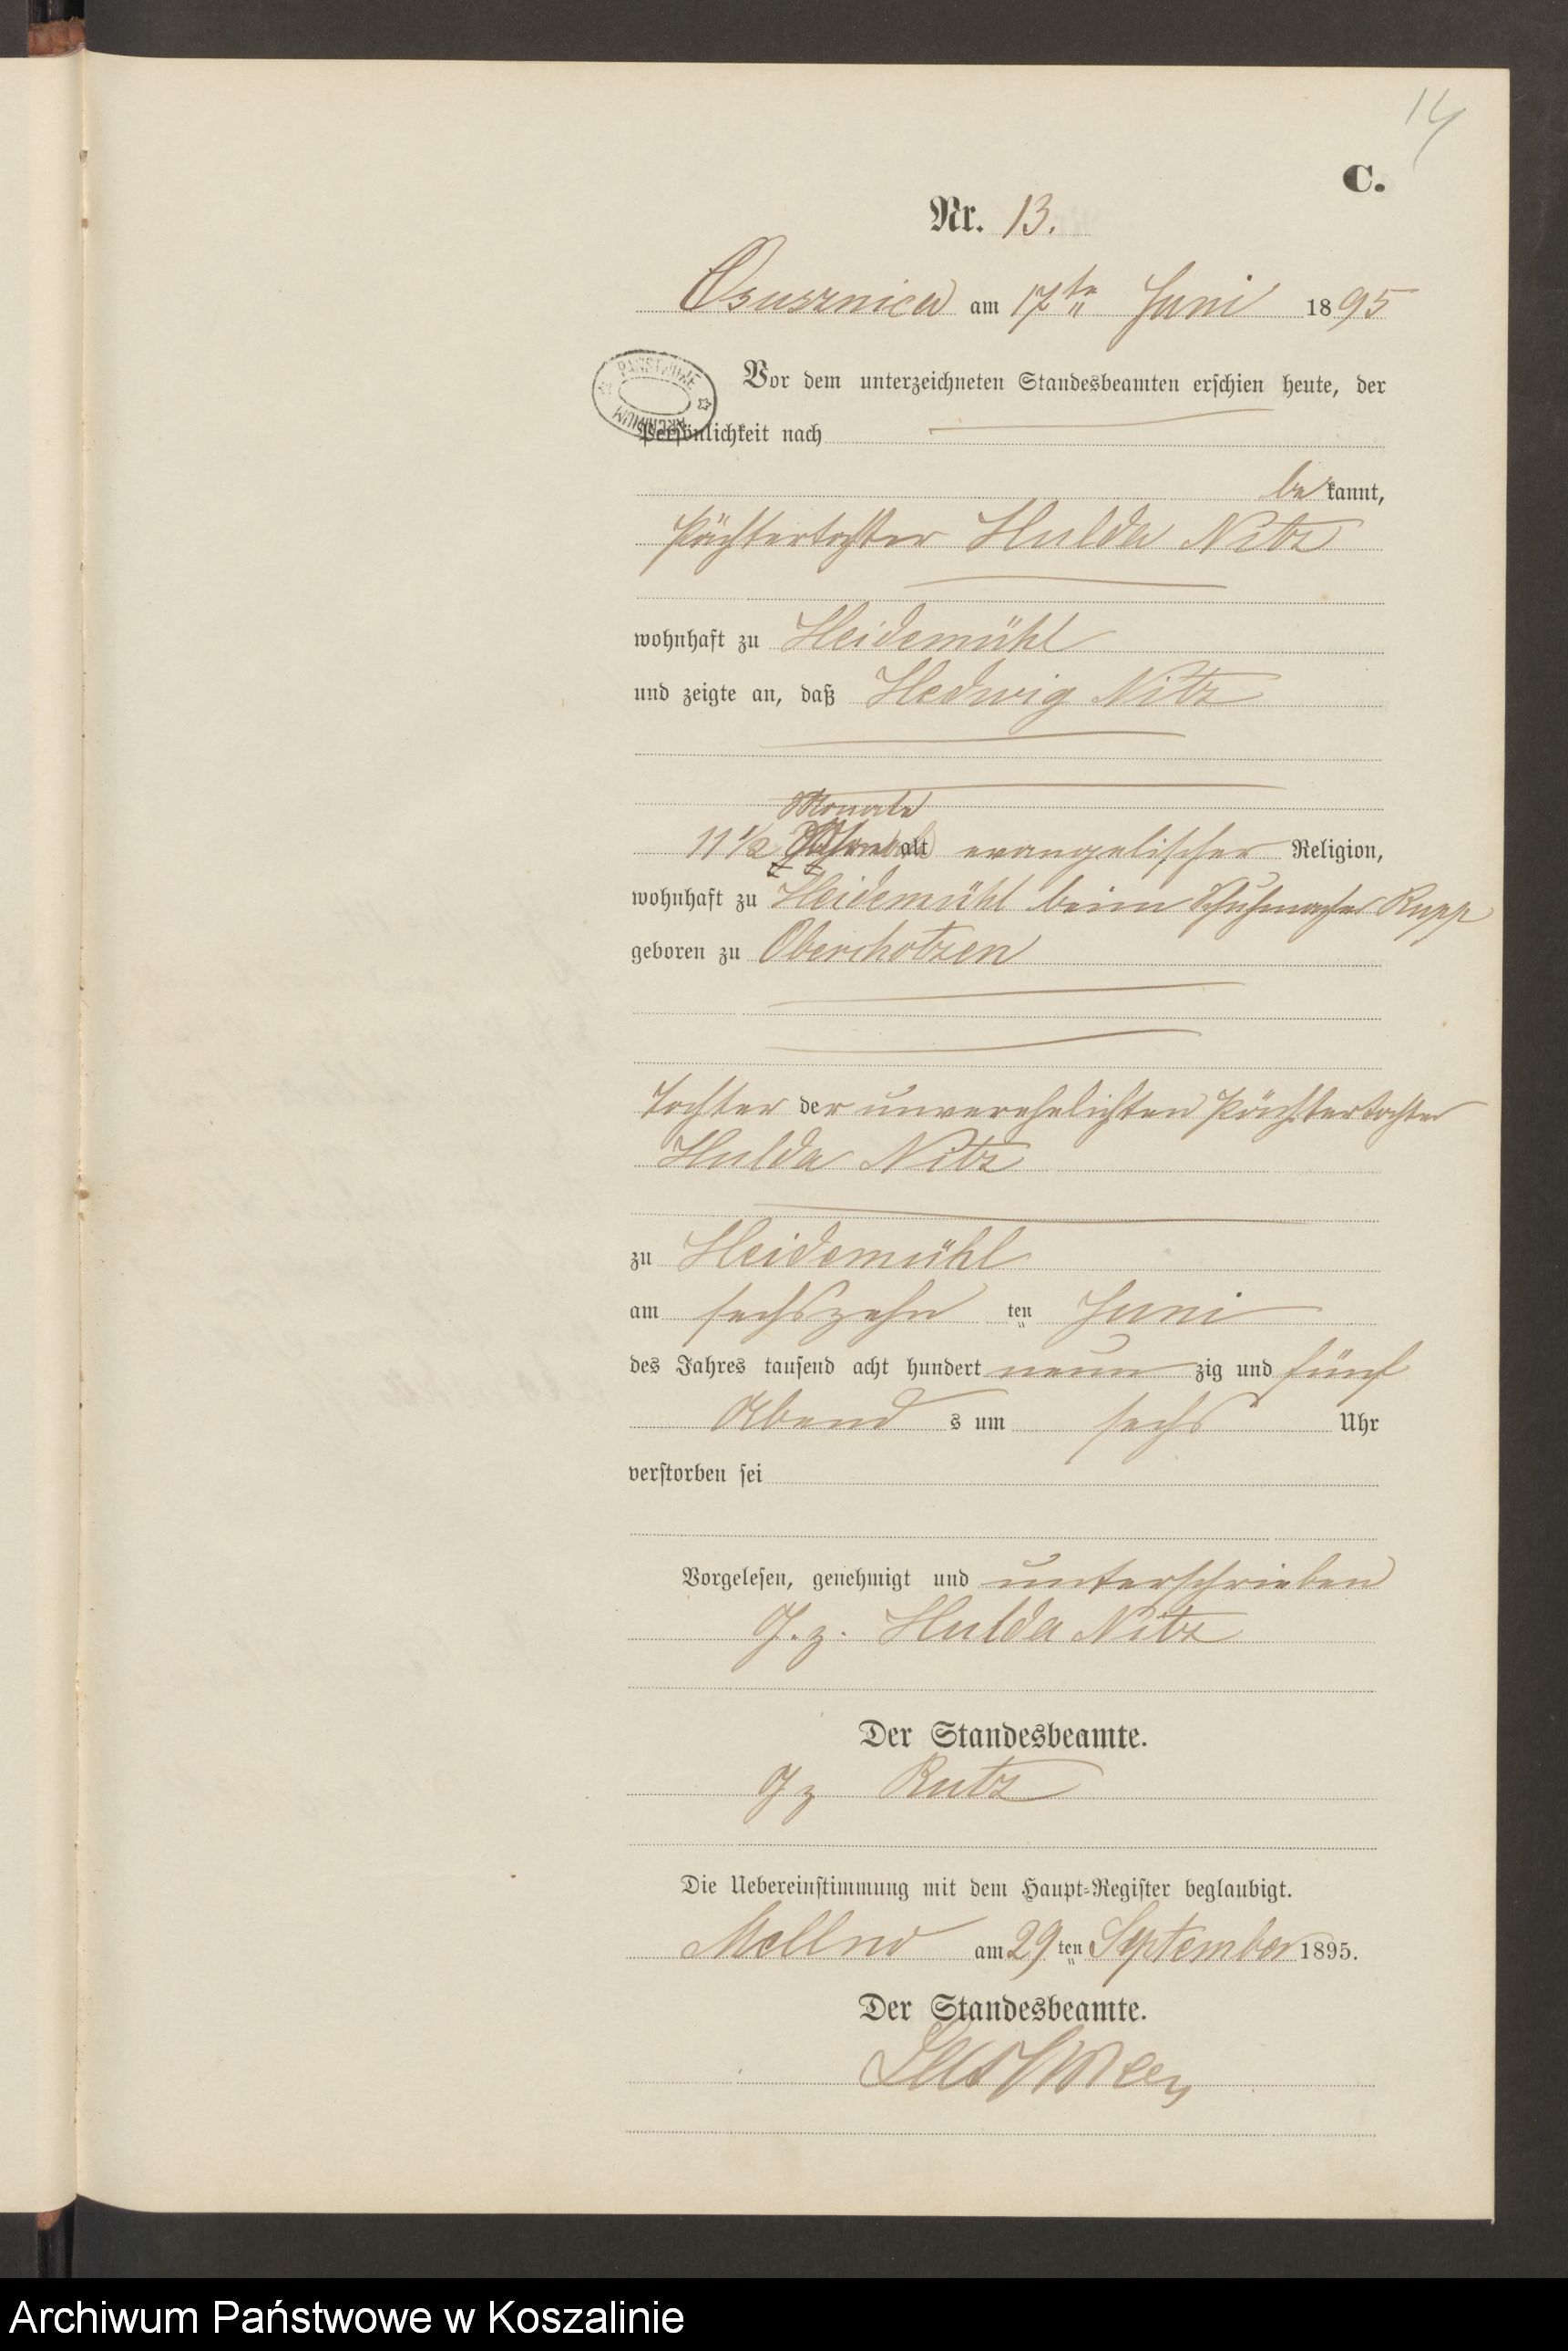 14
C.
Nr. 13.
Osusznica am 17ten Juni 1895
PAŃSTWOWE ARCHIWUM
Vor dem unterzeichneten Standesbeamten erschien heute, der
Persönlichkeit nach
bekannt,
Pächtertochter Hulda Nitz
wohnhaft zu Heidemühl
und zeigte an, daß Hedwig Nitz
Monate
11 1/2 alt evangelischer Religion,
wohnhaft zu Heidemühl beim Schuhmacher Rupp
geboren zu Oberchotzen
Tochter der unverehelichten Pächtertochter
Hulda Nitz
zu Heidemühl
am sechszehn ten Juni
des Jahres tausend acht hundert neun zig und fünf
Abend s um sechs Uhr
verstorben sei
Vorgelesen, genehmigt und unterschrieben
Gz. Hulda Nitz
Der Standesbeamte.
Gz Rutz
Die Uebereinstimmung mit dem Haupt-Register beglaubigt.
Mellno am 29ten September 1895.
Der Standesbeamte.
Archiwum Państwowe w Koszalinie